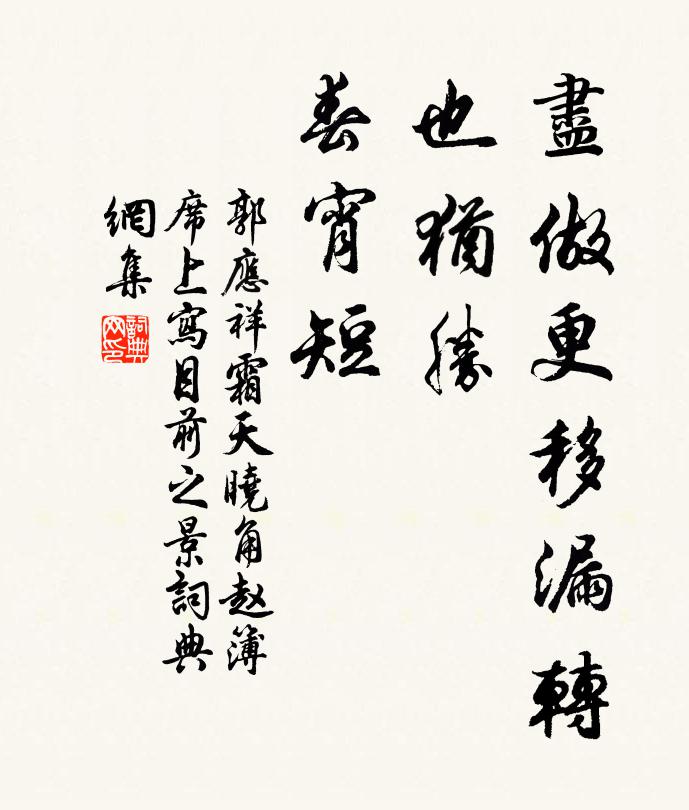 盡做更移漏轉
也猶勝
春宵短
郭應祥霜天曉角赵簿
席上寫目前之景詞典
網集
詞典
网印